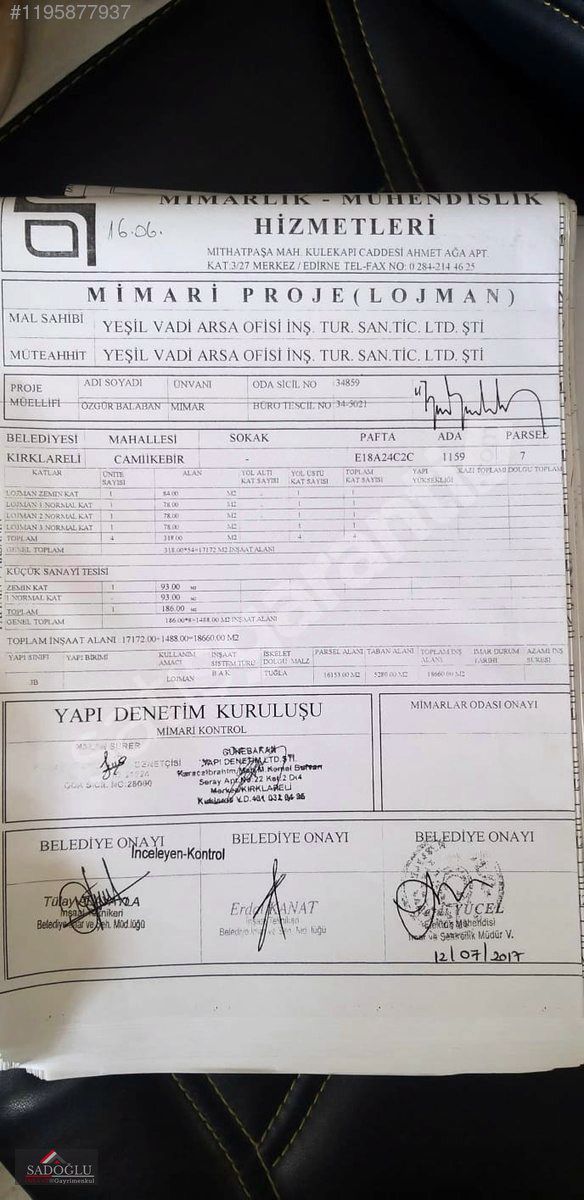 #1195877937
MİMARLIK - MÜHENDİSLİK
16.06.
HİZMETLERİ
MİTHATPAŞA MAH. KULEKAPI CADDESİ AHMET AĞA APT.
KAT.3/27 MERKEZ / EDİRNE TEL-FAX NO: 0 284-214 46 25
MİMARİ PROJE(LOJMAN)
MAL SAHİBİ YEŞİL VADİ ARSA OFİSİ İNŞ. TUR. SAN.TİC. LTD. ŞTİ
MÜTEAHHİT YEŞİL VADİ ARSA OFİSİ İNŞ. TUR. SAN.TİC. LTD. ŞTİ
PROJE MÜELLİFİ
ADI SOYADI ÜNVANI ODA SİCİL NO 34859
ÖZGÜR BALABAN MİMAR BÜRO TESCİL NO 34-5021
BELEDİYESİ MAHALLESİ SOKAK PAFTA ADA PARSEL
KIRKLARELİ CAMİİKEBİR - E18A24C2C 1159 7
KATLAR ÜNİTE SAYISI ALAN YOL ALTI KAT SAYISI YOL ÜSTÜ KAT SAYISI TOPLAM KAT SAYISI YAPI YÜKSEKLİĞİ KAZI TOPLAMI DOLGU TOPLAM
LOJMAN ZEMİN KAT 1 84.00 M2 - 1 1
LOJMAN 1 NORMAL KAT 1 78.00 M2 - 1 1
LOJMAN 2 NORMAL KAT 1 78.00 M2 - 1 1
LOJMAN 3 NORMAL KAT 1 78.00 M2 - 1 1
TOPLAM 4 318.00 M2 4 4
GENEL TOPLAM 318.00*54=17172 M2 İNŞAAT ALANI
KÜÇÜK SANAYİ TESİSİ
ZEMİN KAT 1 93.00 M2
1 NORMAL KAT - 93.00 M2
TOPLAM 1 186.00 M2
GENEL TOPLAM 186.00*8=1488.00 M2 İNŞAAT ALANI
TOPLAM İNŞAAT ALANI 17172.00+1488.00=18660.00 M2
YAPI SINIFI YAPI BİRİMİ KULLANIM AMACI İNŞAAT SİSTEM TÜRÜ İSKELET DOLGU MALZ PARSEL ALANI TABAN ALANI TOPLAM İNŞ ALANI İMAR DURUM TARİHİ AZAMİ İNŞ SÜRESİ
3B LOJMAN B A K TUĞLA 16153.00 M2 5280.00 M2 18660.00 M2
YAPI DENETİM KURULUŞU
MİMARİ KONTROL
MİMARLAR ODASI ONAYI
SÜRER
DENETÇİSİ
ODA SİCİL NO:
GÜNEBAKAN
YAPI DENETİM LTD.ŞTİ.
Karacaibrahim Mah.
Saray Apt. No:22 Kat:2 D:4
Merkez/KIRKLARELİ
BELEDİYE ONAYI BELEDİYE ONAYI BELEDİYE ONAYI
İnceleyen-Kontrol
Tülay
İnşaat Teknikeri
Belediye İmar ve Şeh. Müd.lüğü
KANAT
İnşaat Teknikeri
YÜCEL
İmar ve Şehircilik Müdür V.
12/07/2017
SADOĞLU
Gayrimenkul